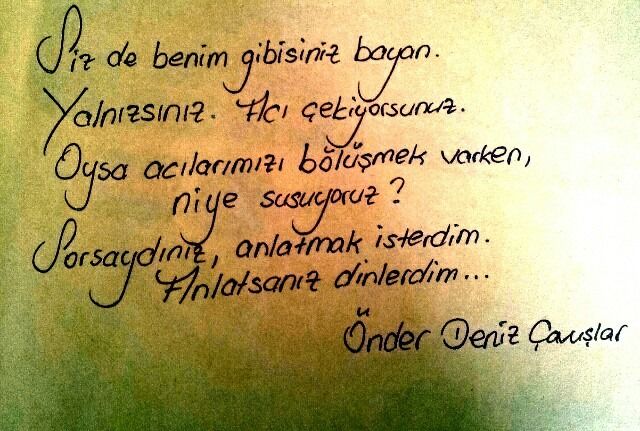 Siz de benim gibisiniz bayan.
Yalnızsınız. Acı çekiyorsunuz.
Oysa acılarımızı bölüşmek varken,
niye susuyoruz?
Sorsaydınız, anlatmak isterdim.
Anlatsanız dinlerdim...
Önder Deniz Çavuşlar